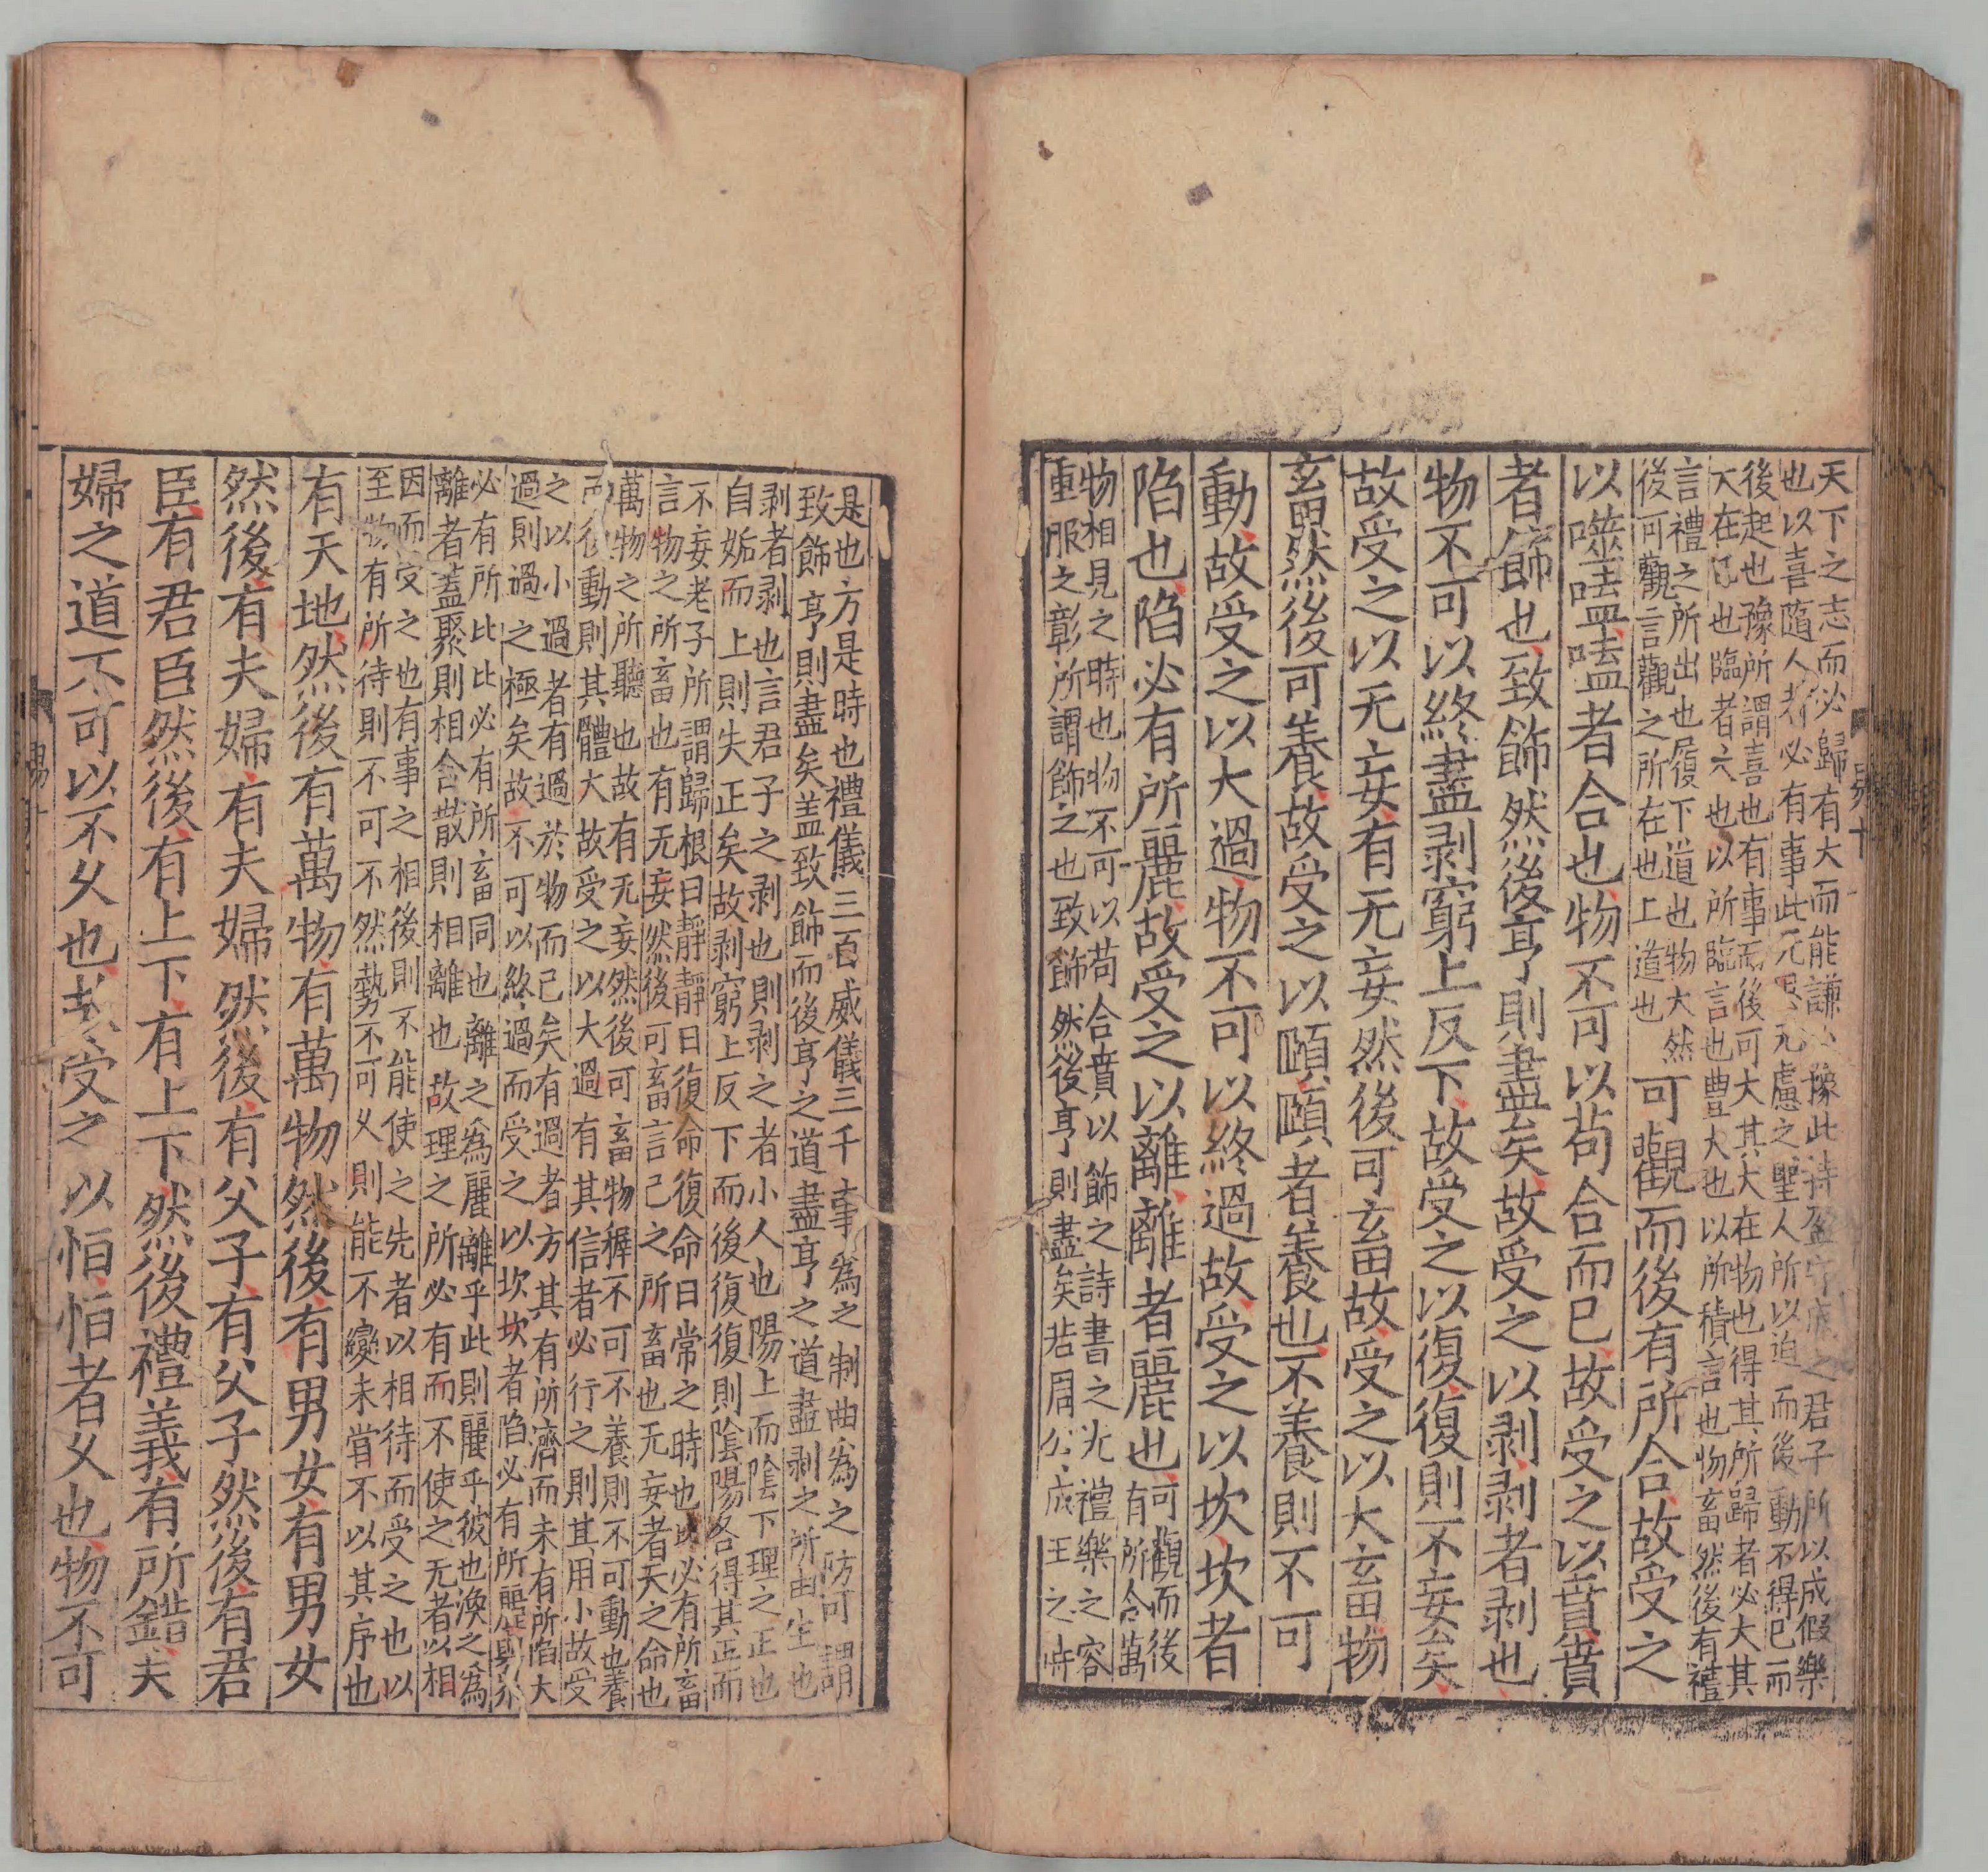 天下之志而必歸有大而能謙必豫此持盈守成之君子所以成假樂
也以喜隨人者必有事此无思无慮之聖人所以迫而後動不得已而
後起也豫所謂喜也有事而後可大其大在物也得其所歸者必大其
大在己也臨者大也以所臨言也豊大也以所積言也物畜然後有禮
言禮之所出也履下道也物大然
後可觀言觀之所在也上道也
可觀而後有所合故受之
以噬嗑嗑者合也物不可以苟合而已故受之以賁賁
者飾也致飾然後亨則盡矣故受之以剥剥者剥也
物不可以終盡剥窮上反下故受之以復復則不妄矣
故受之以无妄有无妄然後可畜故受之以大畜物
畜然後可養故受之以頤頤者養也不養則不可
動故受之以大過物不可以終過故受之以坎坎者
陷也陷必有所麗故受之以離離者麗也
可觀而後
有所合萬
物相見之時也物不可以苟合賁以飾之詩書之光禮樂之容
重服之彰所謂飾之也致飾然後亨則盡矣若周公成王之時
是也方是時也禮儀三百威儀三千事為之制曲為之防可謂
致飾亨則盡矣盖致飾而後亨之道盡亨之道盡剥之所由生也
剥者剥也言君子之剥也則剥之者小人也陽上而陰下理之正也
自姤而上則失正矣故剥窮上反下而後復復則陰陽各得其正而
不妄老子所謂歸根曰靜靜曰復命復命曰常之時也此必有所畜
言物之所畜也有无妄然後可畜言己之所畜也无妄者天之命也
萬物之所聽也故有无妄然後可畜物穉不可不養則不可動也養
而後動則其體大故受之以大過有其信者必行之則其用小故受
之以小過者有過於物而已矣有過者方其有所濟而未有所陷大
過則過之極矣故不可以終過而受之以坎坎者陷必有所麗
必有所比比必有所畜同也離之為麗離乎此則麗乎彼也渙之為
離者蓋聚則相合散則相離也故理之所必有而不使之无者以相
因而受之也有事之相後則不能使之先者以相待而受之也以
至物有所待則不可不然勢不可久則能不變未甞不以其序也
有天地然後有萬物有萬物然後有男女有男女
然後有夫婦有夫婦然後有父子有父子然後有君
臣有君臣然後有上下有上下然後禮義有所錯夫
婦之道不可以不久也故受之以恒恒者久也物不可